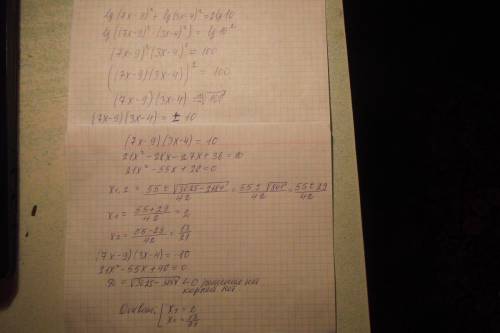 lg(7x-9)² + lg(3x-4)² = 2lg10
lg((7x-9)² · (3x-4)²) = lg10²
(7x-9)² (3x-4)² = 100
((7x-9)(3x-4))² = 100
(7x-9)(3x-4) = √100
(7x-9)(3x-4) = ± 10
(7x-9)(3x-4) = 10
21x² - 28x - 27x + 36 = 10
21x² - 55x + 26 = 0
x₁,₂ = (55 ± √(3025-2184))/42 = (55 ± √841)/42 = (55 ± 29)/42
x₁ = (55+29)/42 = 2
x₂ = (55-29)/42 = 13/21
(7x-9)(3x-4) = -10
21x² - 55x + 46 = 0
<0
корней нет
Ответ: [x₁ = 2
x₂ = 13/21